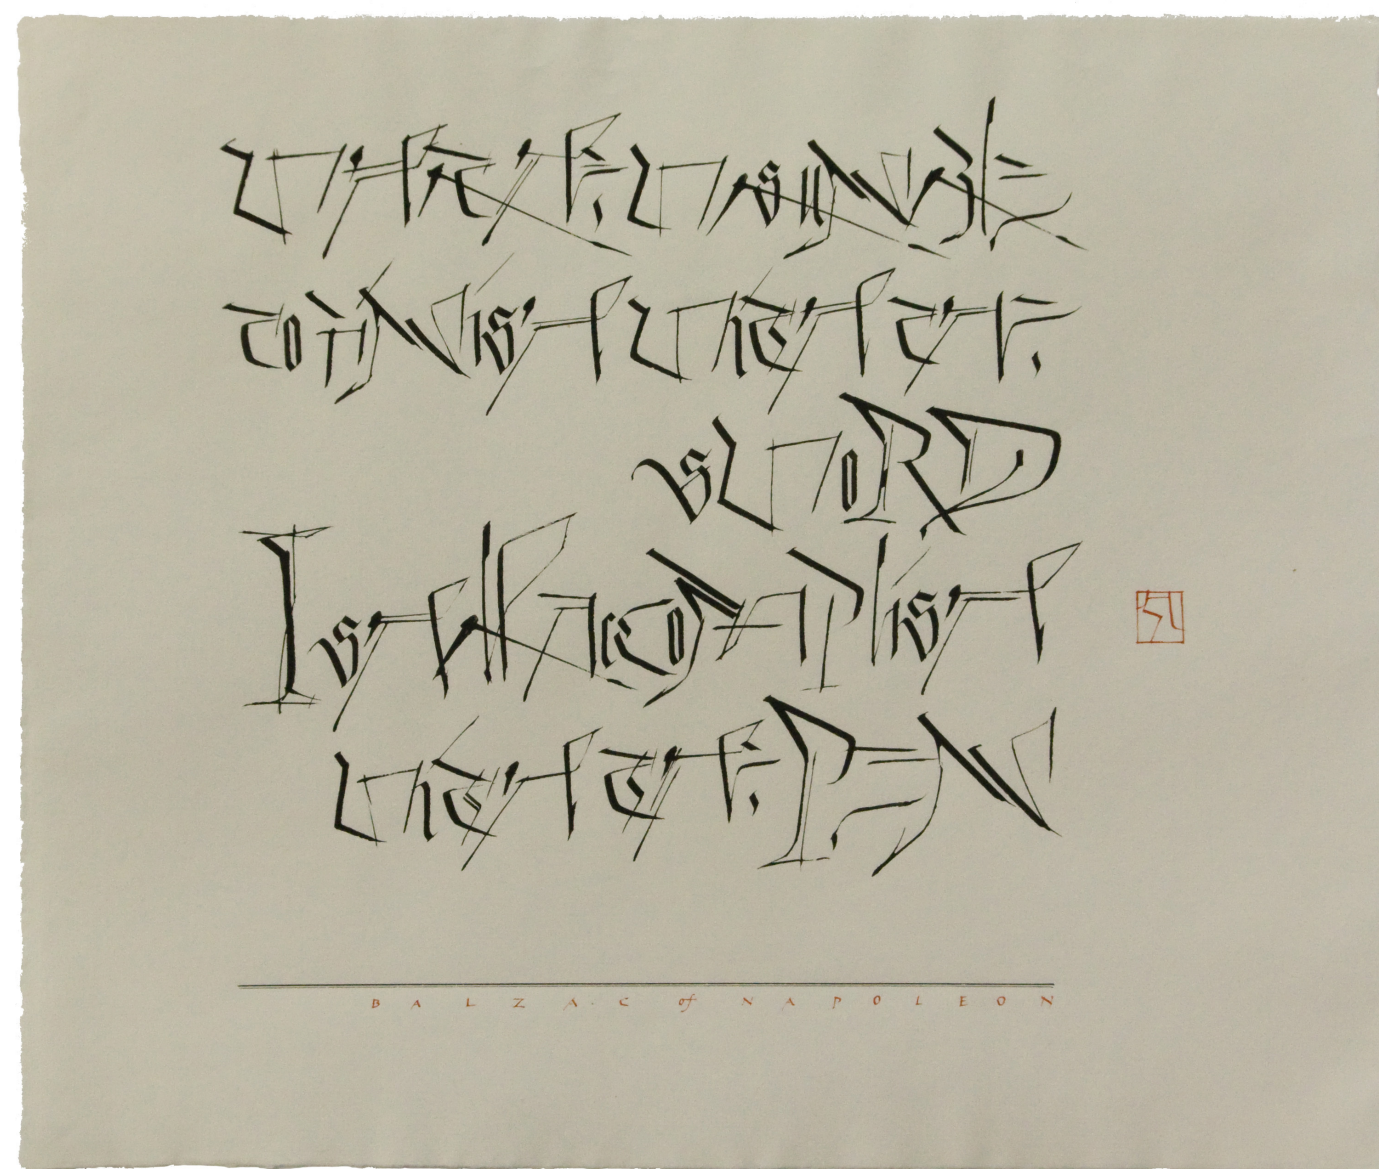 WHAT HE WAS UNABLE
TO FINISH WITH THE
SWORD
I SHALL ACCOMPLISH
WITH THE PEN
BALZAC of NAPOLEON